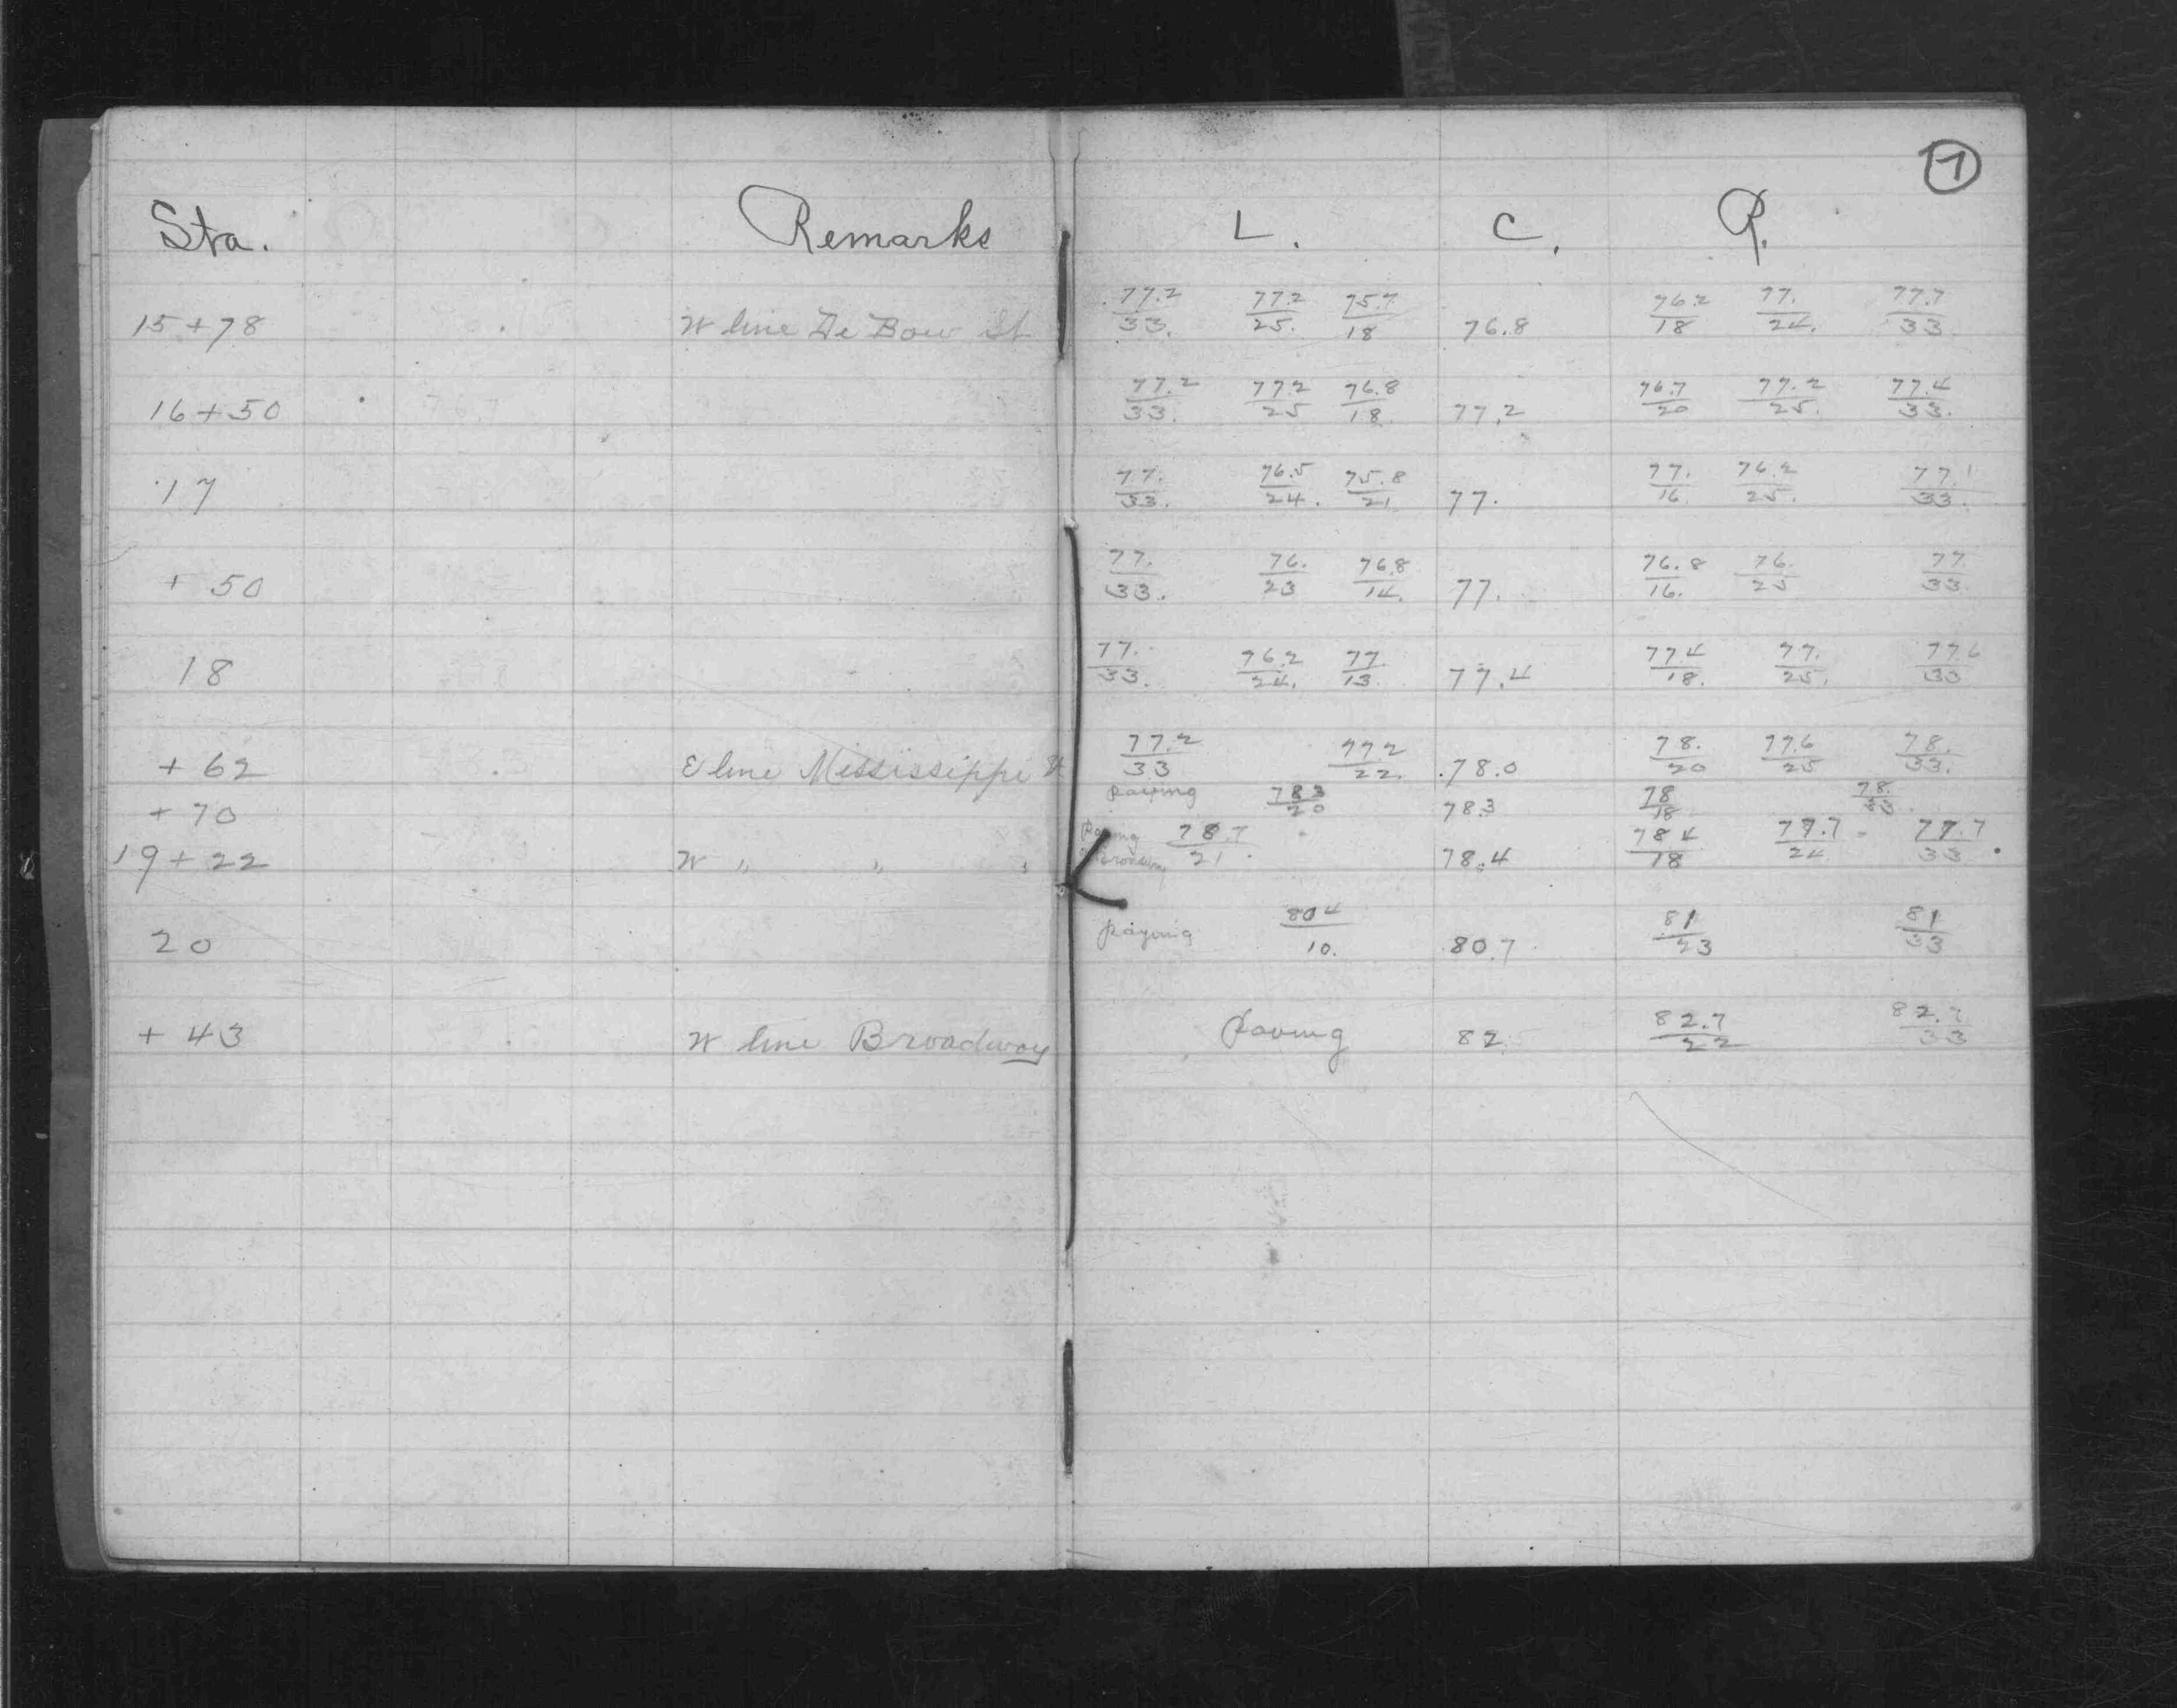 7
Sta. Remarks L. C. R.
15+78 W line De Bow St 77.2/33. 77.2/25. 75.7/18 76.8 76.2/18 77./24. 77.7/33
16+50 77.2/33. 77.2/25 76.8/18. 77.2 76.7/20 77.2/25. 77.4/33.
17 77./33. 76.5/24. 75.8/21 77. 77./16. 76.2/25. 77.1/33.
+ 50 77./33. 76./23 76.8/14. 77. 76.8/16. 76./25 77/33.
18 77./33. 76.2/24. 77./13. 77.4 77.4/18. 77./25. 77.6/33
+ 62 E line Mississippi St 77.2/33 77.2/22. 78.0 78./20 77.6/25 78./33.
+ 70 paving 78.3/20 78.3 78/18 78./33
19+22 W " " " Paving 78.7/21. 78.4 78.4/18 77.7/24 77.7/33
20 paving 80.4/10. 80.7 81/23 81/33
+ 43 W line Broadway Paving 82. 82.7/22 82.7/33